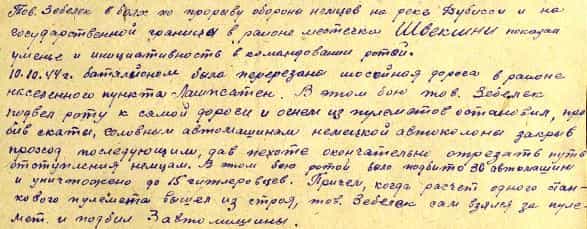 Тов. Зебелек в боях по прорыву обороны немцев на реке Дубисси и на
государственной границы в районе местечка Швекшни показал
уменье и инициативность в командовании ротой.
10.10.44г. батальоном была перерезана шоссейная дорога в районе
населенного пункта В этом бою тов. Зебелек
подвел роту к самой дороги и огнем из пулеметов остановил, про
бив скаты, головным автомашинам немецкой автоколоны закрыв
проход последующим, дав пехоте окончательно отрезать путь
отступления немцам. В этом бою ротой было подбито 30 автомашин
и уничтожено до 15 гитлеровцев. Причем, когда расчет одного стан
кового пулемета вышел из строя, тов. Зебелек сам взялся за пуле-
мет. и подбил 3 автомашины.